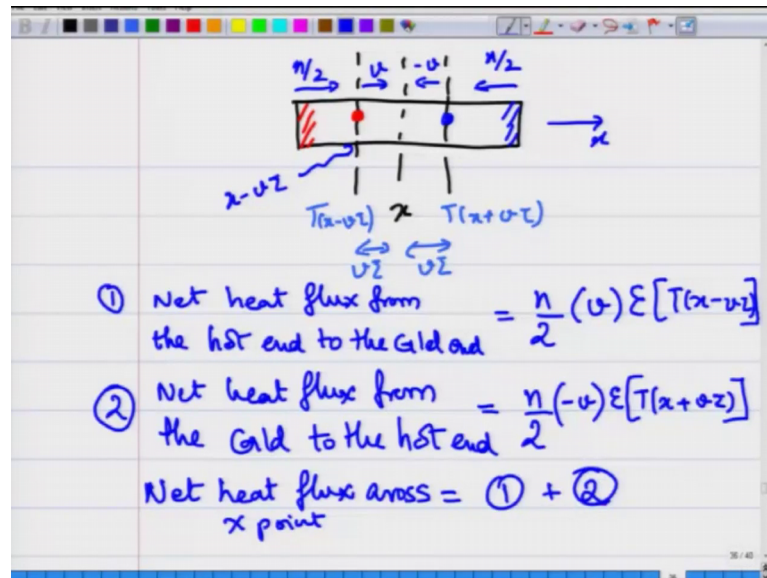 n/2 v -v n/2
x
x-vτ
T(x-vτ) x T(x+vτ)
vτ vτ
① Net heat flux from
the hot end to the cold end = n/2 (v) ε[T(x-vτ)]
② Net heat flux from
the cold to the hot end = n/2 (-v) ε[T(x+vτ)]
Net heat flux aross = ① + ②
x point
36 / 40